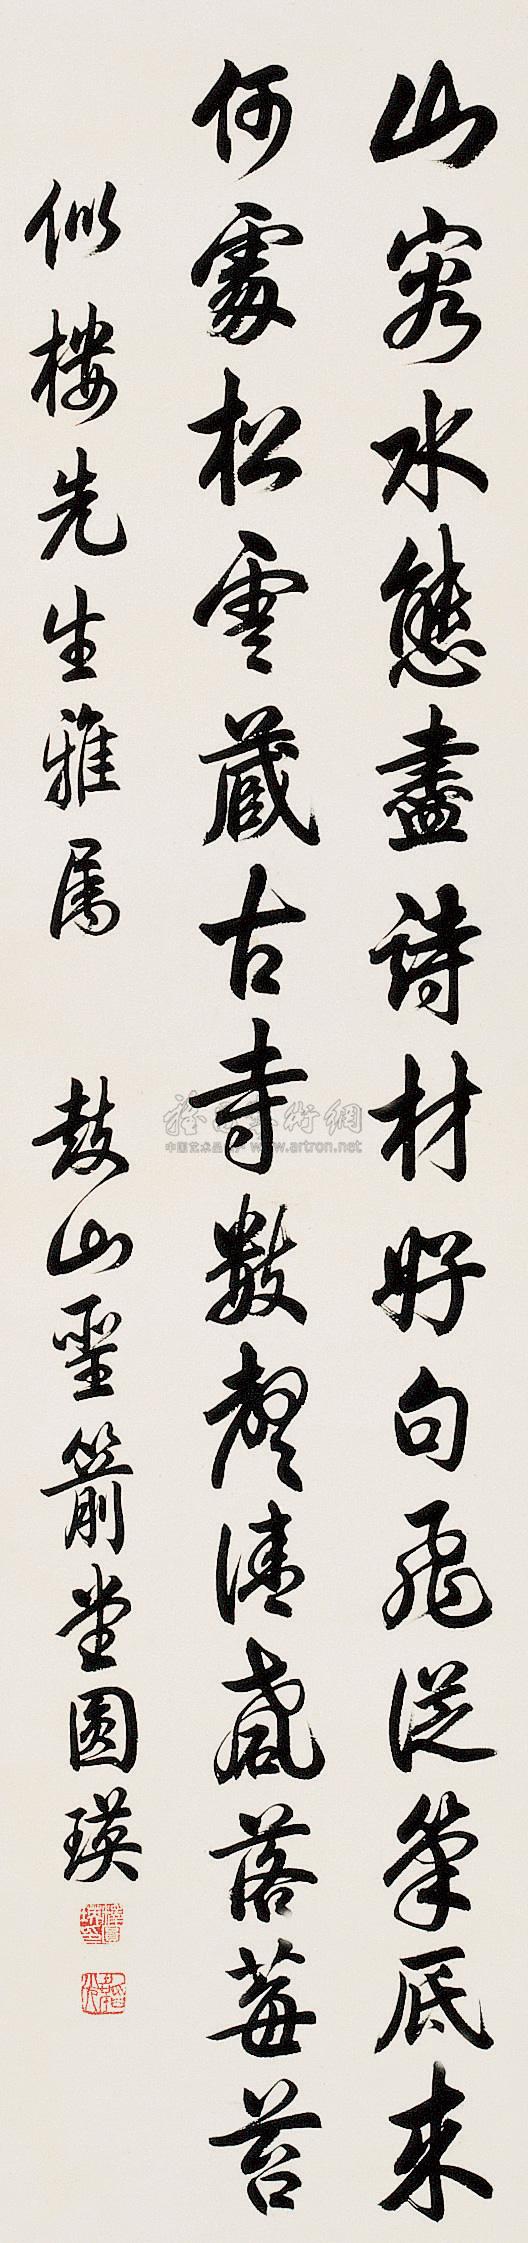 山容水態盡詩材好句飛從筆底來
何處松雲藏古寺數聲清磬落莓苔
似樓先生雅属 鼓山聖箭堂圆瑛
中国艺术品 www.artron.net